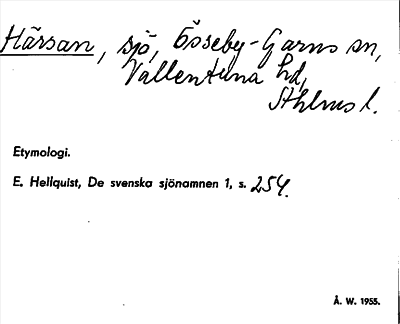 Härsan, sjö, Össeby-Garns sn,
Vallentuna hd,
Sthlms l.
Etymologi.
E. Hellquist, De svenska sjönamnen 1, s. 254.
Å. W. 1955.